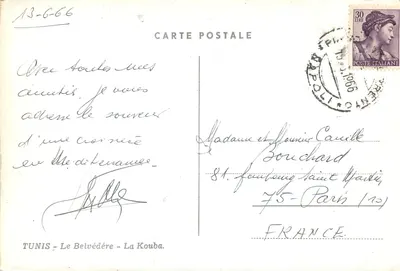 13-6-66
CARTE POSTALE
30
POSTE ITALIANE
NAPOLI
1966
Avec toutes mes
amitiés, je vous
adresse le souvenir
d'une croisière
en Méditerranée.
Madame et Monsieur Camille
Bouchard
81, faubourg Saint Martin
75 - Paris (10)
FRANCE
TUNIS - Le Belvédère - La Kouba.